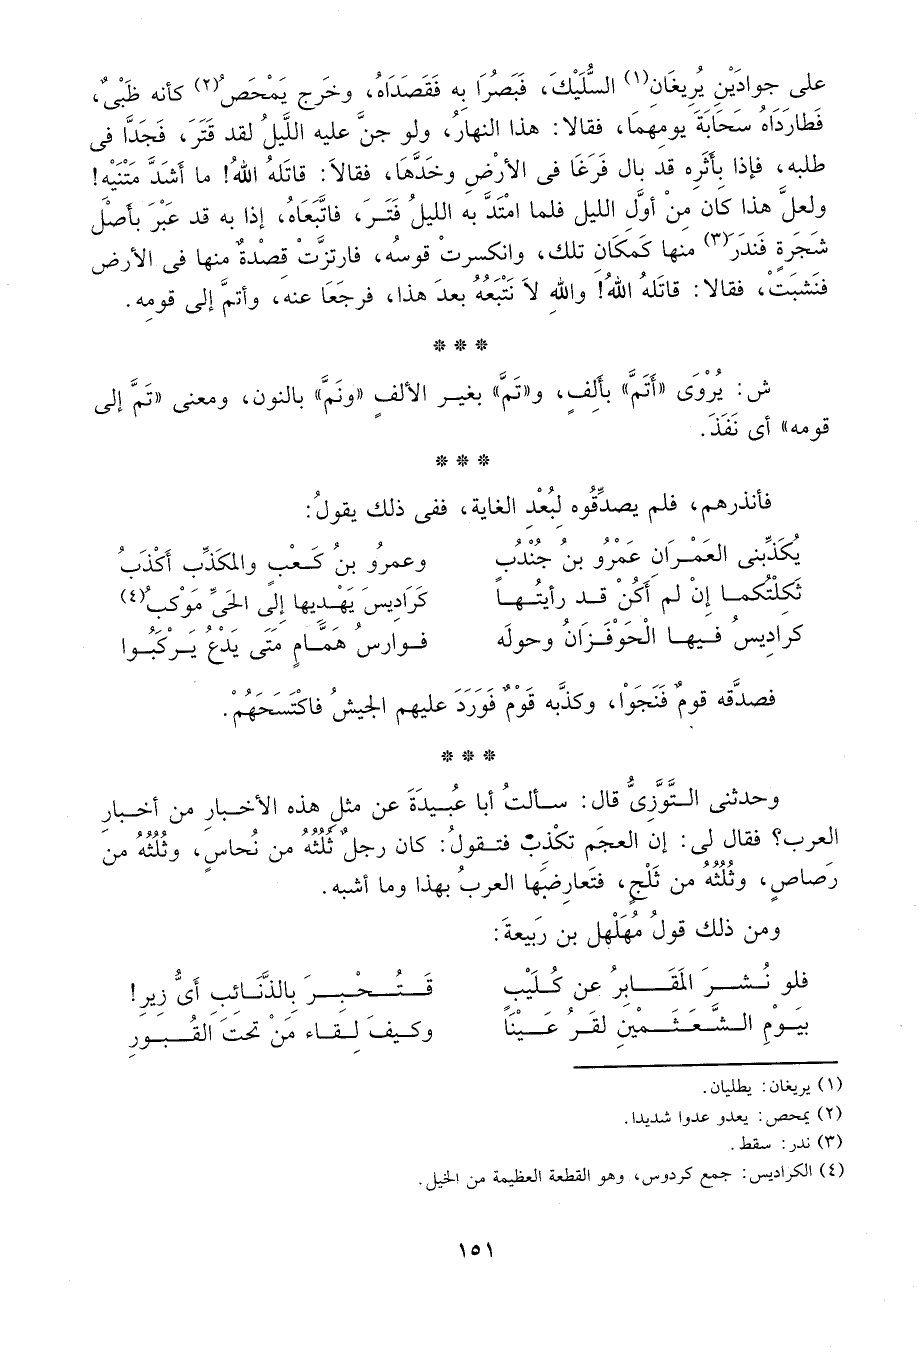 على جوادَيْنِ يُريغَان(١) السُّلَيْكَ، فَبَصُرَا به فَقَصَدَاهُ، وخَرج يَمْحَصُ(٢) كأنه ظَبْىٌ،
فَطارَدَاهُ سَحَابَةَ يومِهِما، فقالا: هذا النهارُ، ولو جنَّ عليه اللَّيلُ لقد فَتَرَ، فَجَدَّا فى
طلبه، فإذا بأَثَرِه قد بال فَرَغَا فى الأرْضِ وخَدَّهَا، فقالاَ: قاتلهُ اللهُ! ما أشَدَّ مَتْنَيْه!
ولعلَّ هذا كان مِنْ أوَّلِ الليل فلما امتَدَّ به الليلُ فَتَـرَ، فاتَّبَعَاهُ، إذا به قد عَبَرَ بأصْلِ
شَجَرةٍ فَنَدَرَ(٣) منها كَمكَان تلك، وانكسرتْ قوسُه، فارتزَّتْ قصْدةٌ منها فى الأرضِ
فنَشَبَتْ، فقالا: قاتلهُ اللهُ! واللهِ لاَ نَتْبَعُهُ بعدَ هذا، فرجَعَا عنه، وأتمَّ إلى قومِه.
* * *
ش: يُرْوَى «أَتَمَّ» بألفٍ، و«تَمَّ» بغيـر الألفِ «ونَمَّ» بالنون، ومعنى «تَمَّ إلى
قومه» أى نَفَذَ.
* * *
فأنذرهم، فلم يصدِّقُوه لبُعْدِ الغاية، ففى ذلك يقولُ:
يُكَذِّبنى العَمْـرَانِ عَمْرُو بنُ جُنْدُبٍ وعمرُو بنُ كَـعْبٍ والمكَذِّب أكْذَبُ
ثَكلْتُكمـا إنْ لم أكُنْ قـد رأيتُـهـا كَرَاديسَ يَهْـديها إلى الحَىِّ مَوْكب(٤)
كرادِيسُ فـيهـا الْحَوْفَـزَانُ وحولَه فـوارسُ هَمَّـامٍ مَتَى يَدْعُ يَـرْكَبُـوا
فصدَّقه قومٌ فَنَجَوْا، وكذَّبه قَوْمٌ فَوَرَدَ عليهم الجيشُ فاكْتَسَحَهُمْ.
* * *
وحدثنى التـوَّزِىُّ قال: سـألتُ أبا عُبـيدَةَ عن مثلِ هذه الأخـبار من أخـبارِ
العربِ؟ فقال لى: إن العجَم تكْذبُ فتـقولُ: كان رجلٌ ثُلُثُهُ من نُحاسٍ، وثُلُثُهُ من
رَصاصٍ، وثُلُثُهُ من ثَلْجٍ، فتَعارضُها العربُ بهذا وما أشبه.
ومن ذلك قولُ مُهَلْهِلِ بن رَبيعةَ:
فلو نُـشـرَ المَقَـابرُ عن كُـلَيْبٍ فَـتُـخْـبـرَ بالذَّنَائبِ أىُّ زيرِ!
بيَـوْمِ الـشَّـعْثَـمْينِ لقَرَّ عَـيْنًا وكـيفَ لـقاء مَنْ تحْتَ القُـبـورِ
(١) يريغان: يطلبان.
(٢) يمحص: يعدو عدوا شديدا.
(٣) ندر: سقط.
(٤) الكراديس: جمع كردوس، وهو القطعة العظيمة من الخيل.
١٥١